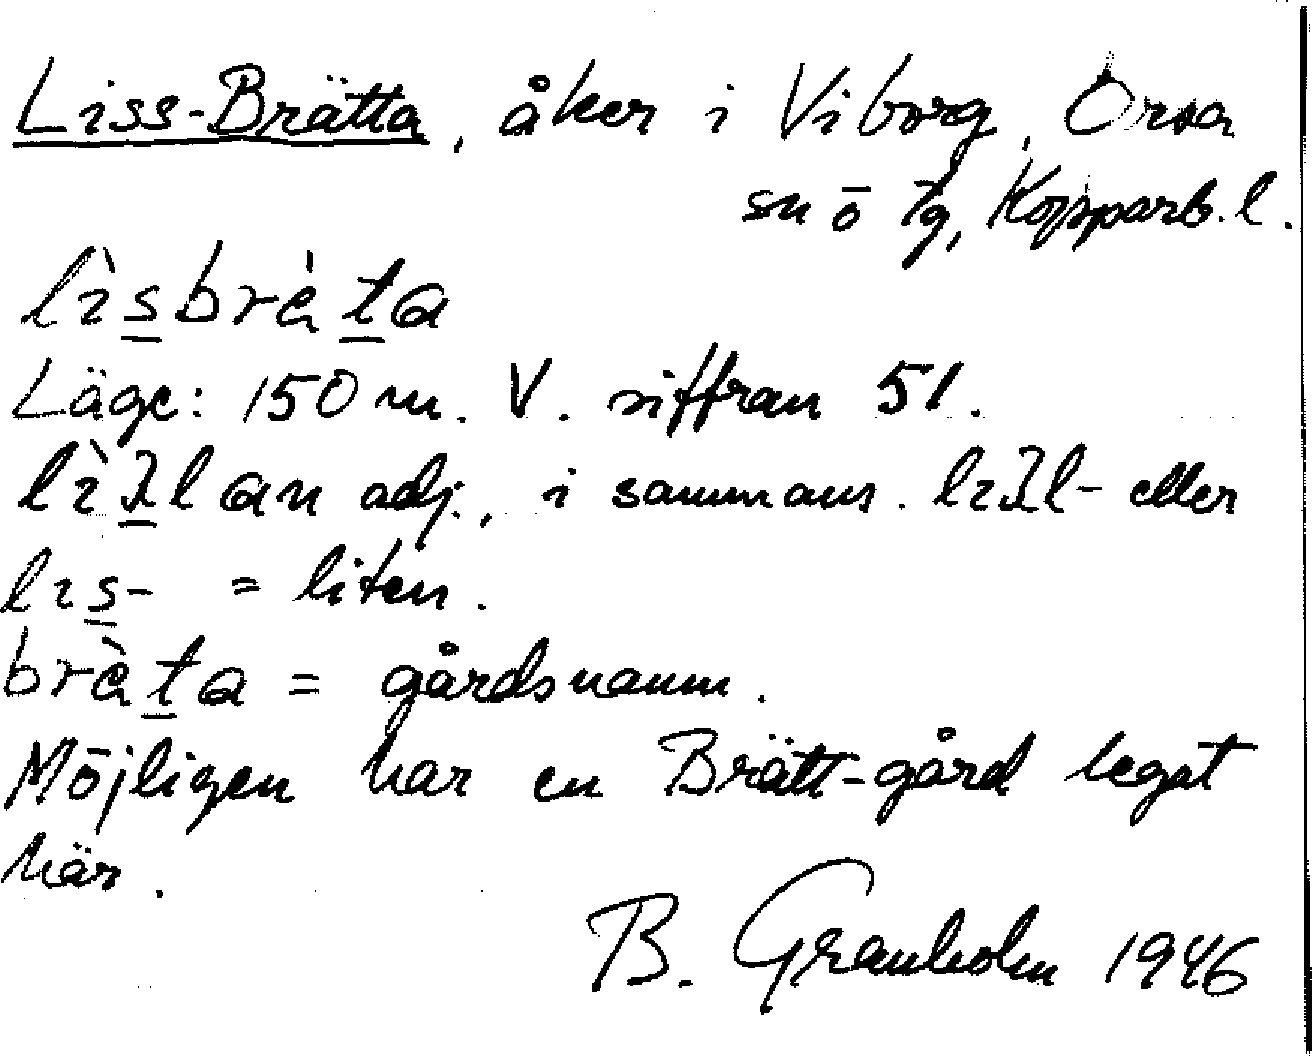 Liss-Brätta, åker i Viborg, Orsa
sn ō tg, Kopparb. l.
lìsbrèta
Läge: 150 m. V. siffran 51.
adj., i sammans. eller
lıs- = liten.
brèta = gårdsnamn.
Möjligen har en Brätt-gård legat
här.
B. Granholm 1946